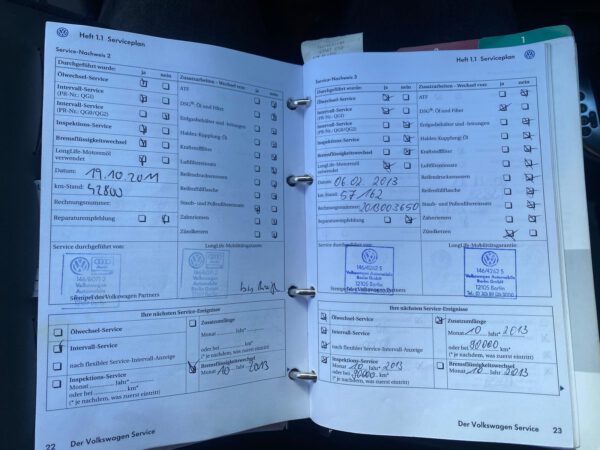 Heft 1.1 Serviceplan
Service-Nachweis 2
Durchgeführt wurde:
ja nein
Zusatzarbeiten - Wechsel von:
ja nein
Ölwechsel-Service
Intervall-Service
(PR-Nr.: QG1)
Intervall-Service
(PR-Nr.: QG0/QG2)
Inspektions-Service
Bremsflüssigkeitswechsel
LongLife-Motorenöl
verwendet
Datum: 19.10.2011
km-Stand: 42800
Rechnungsnummer:
Reparaturempfehlung
ATF
DSG®: Öl und Filter
Erdgasbehälter und -leitungen
Haldex-Kupplung: Öl
Kraftstofffilter
Luftfiltereinsatz
Reifendruckmesser
Reifenfüllflasche
Staub- und Pollenfiltereinsatz
Zahnriemen
Zündkerzen
Service durchgeführt von:
LongLife-Mobilitätsgarantie:
Volkswagen
Automobile
Berlin
Stempel des Volkswagen Partners
Ihre nächsten Service-Ereignisse
Ölwechsel-Service
Intervall-Service
nach flexibler Service-Intervall-Anzeige
Inspektions-Service
Monat Jahr*
oder bei km*
(* je nachdem, was zuerst eintritt)
Zusatzumfänge
Monat Jahr*
oder bei km*
(* je nachdem, was zuerst eintritt)
Bremsflüssigkeitswechsel
Monat 10 Jahr 2013
22 Der Volkswagen Service
Heft 1.1 Serviceplan
1
Service-Nachweis 3
Durchgeführt wurde:
ja nein
Zusatzarbeiten - Wechsel von:
ja nein
Ölwechsel-Service
Intervall-Service
(PR-Nr.: QG1)
Intervall-Service
(PR-Nr.: QG0/QG2)
Inspektions-Service
Bremsflüssigkeitswechsel
LongLife-Motorenöl
verwendet
Datum: 06.02.2013
km-Stand: 57 162
Rechnungsnummer: 2013003650
Reparaturempfehlung
ATF
DSG®: Öl und Filter
Erdgasbehälter und -leitungen
Haldex-Kupplung: Öl
Kraftstofffilter
Luftfiltereinsatz
Reifendruckmesser
Reifenfüllflasche
Staub- und Pollenfiltereinsatz
Zahnriemen
Zündkerzen
Service durchgeführt von:
LongLife-Mobilitätsgarantie:
Volkswagen Automobile
Berlin GmbH
12105 Berlin
Stempel des Volkswagen Partners
Volkswagen Automobile
Berlin GmbH
12105 Berlin
Ihre nächsten Service-Ereignisse
Ölwechsel-Service
Intervall-Service
nach flexibler Service-Intervall-Anzeige
Inspektions-Service
Monat 10 Jahr* 2013
oder bei 90000 km*
(* je nachdem, was zuerst eintritt)
Zusatzumfänge
Monat 10 Jahr* 2013
oder bei 90000 km*
(* je nachdem, was zuerst eintritt)
Bremsflüssigkeitswechsel
Monat 10 Jahr 2013
Der Volkswagen Service 23